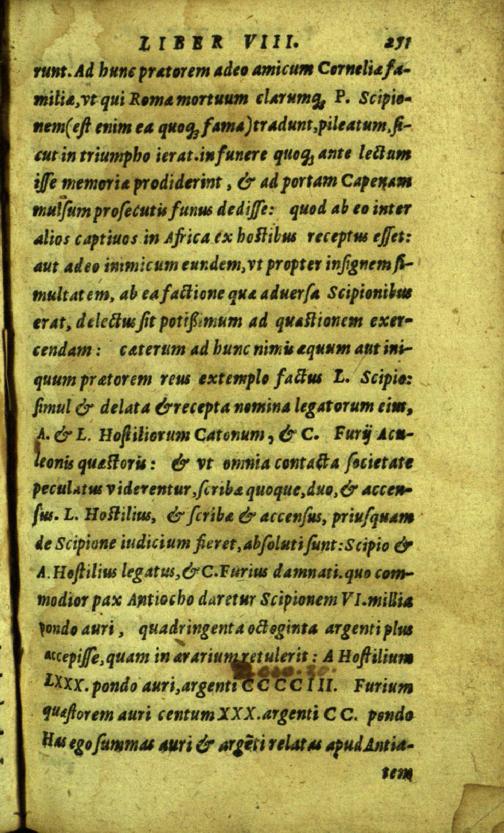 LIBER VIII. 251
runt. Ad hunc prætorem adeo amicum Corneliæ fa-
miliæ, vt qui Romæ mortuum clarumq; P. Scipio-
nem (est enim ea quoq; fama) tradunt, pileatum, si-
cut in triumpho ierat. in funere quoq; ante lectum
isse memoria prodiderint, & ad portam Capenam
mulsum prosecutis funus dedisse: quod ab eo inter
alios captiuos in Africa ex hostibus receptus esset:
aut adeo inimicum eundem, vt propter insignem si-
multatem, ab ea factione quæ aduersa Scipionibus
erat, delectus sit potißimum ad quæstionem exer-
cendam: cæterum ad hunc nimis æquum aut ini-
quum prætorem reus extemplo factus L. Scipio:
simul & delata & recepta nomina legatorum eius,
A. & L. Hostiliorum Catonum, & C. Furij Acu-
leonis quæstoris: & vt omnia contacta societate
peculatus viderentur, scribæ quoque, duo, & accen-
sus. L. Hostilius, & scribæ & accensus, priusquam
de Scipione iudicium fieret, absoluti sunt: Scipio &
A. Hostilius legatus, & C. Furius damnati. quo com-
modior pax Antiocho daretur Scipionem VI. millia
pondo auri, quadringenta octoginta argenti plus
accepisse, quam in ærarium retulerit: A Hostilium
LXXX. pondo auri, argenti CCCCIII. Furium
quæstorem auri centum XXX. argenti CC. pondo
Has ego summas auri & argẽti relatas apud Antia-
tem